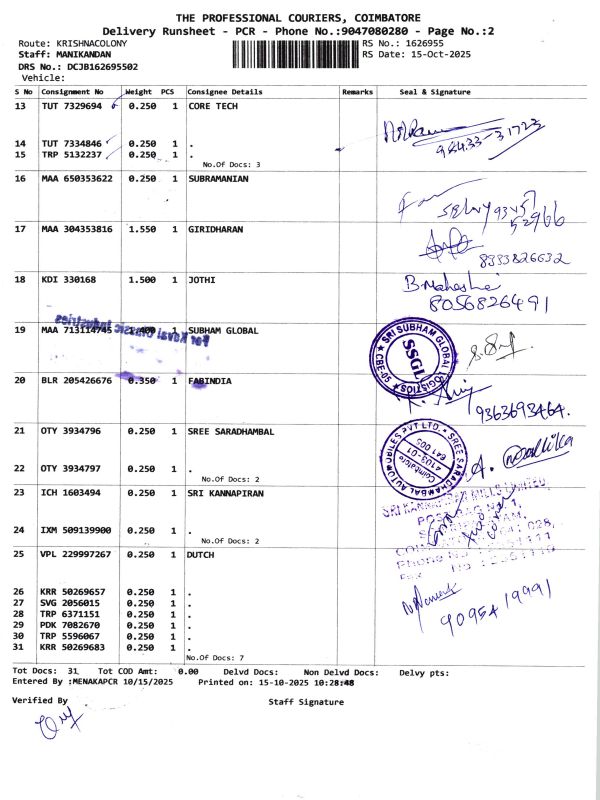 THE PROFESSIONAL COURIERS, COIMBATORE
Delivery Runsheet - PCR - Phone No.:9047080280 - Page No.:2
Route: KRISHNACOLONY RS No.: 1626955
Staff: MANIKANDAN RS Date: 15-Oct-2025
DRS No.: DCJB162695502
Vehicle:
S No Consignment No Weight PCS Consignee Details Remarks Seal & Signature
13 TUT 7329694 0.250 1 CORE TECH
98433-31723
14 TUT 7334846 0.250 1 .
15 TRP 5132237 0.250 1 .
No.Of Docs: 3
16 MAA 650353622 0.250 1 SUBRAMANIAN
17 MAA 304353816 1.550 1 GIRIDHARAN
8333826632
18 KDI 330168 1.500 1 JOTHI
B.Maheshei
8056826491
For Kovai Classic Industries
19 MAA 713114745 1.400 1 SUBHAM GLOBAL
SRI SUBHAM GLOBAL LOGISTICS
CBE-05
SSGL
20 BLR 205426676 0.350 1 FABINDIA
9363693464.
21 OTY 3934796 0.250 1 SREE SARADHAMBAL
SREE SARADHAMBAL AUTOMOBILES PVT LTD.
4103-01
Coimbatore
641 005
22 OTY 3934797 0.250 1 .
No.Of Docs: 2
23 ICH 1603494 0.250 1 SRI KANNAPIRAN
SRI KANNAPIRAN MILLS LIMITED
24 IXM 509139900 0.250 1 .
No.Of Docs: 2
25 VPL 229997267 0.250 1 DUTCH
90954 19991
26 KRR 50269657 0.250 1 .
27 SVG 2056015 0.250 1 .
28 TRP 6371151 0.250 1 .
29 PDK 7082670 0.250 1 .
30 TRP 5596067 0.250 1 .
31 KRR 50269683 0.250 1 .
No.Of Docs: 7
Tot Docs: 31 Tot COD Amt: 0.00 Delvd Docs: Non Delvd Docs: Delvy pts:
Entered By :MENAKAPCR 10/15/2025 Printed on: 15-10-2025 10:28:48
Verified By Staff Signature